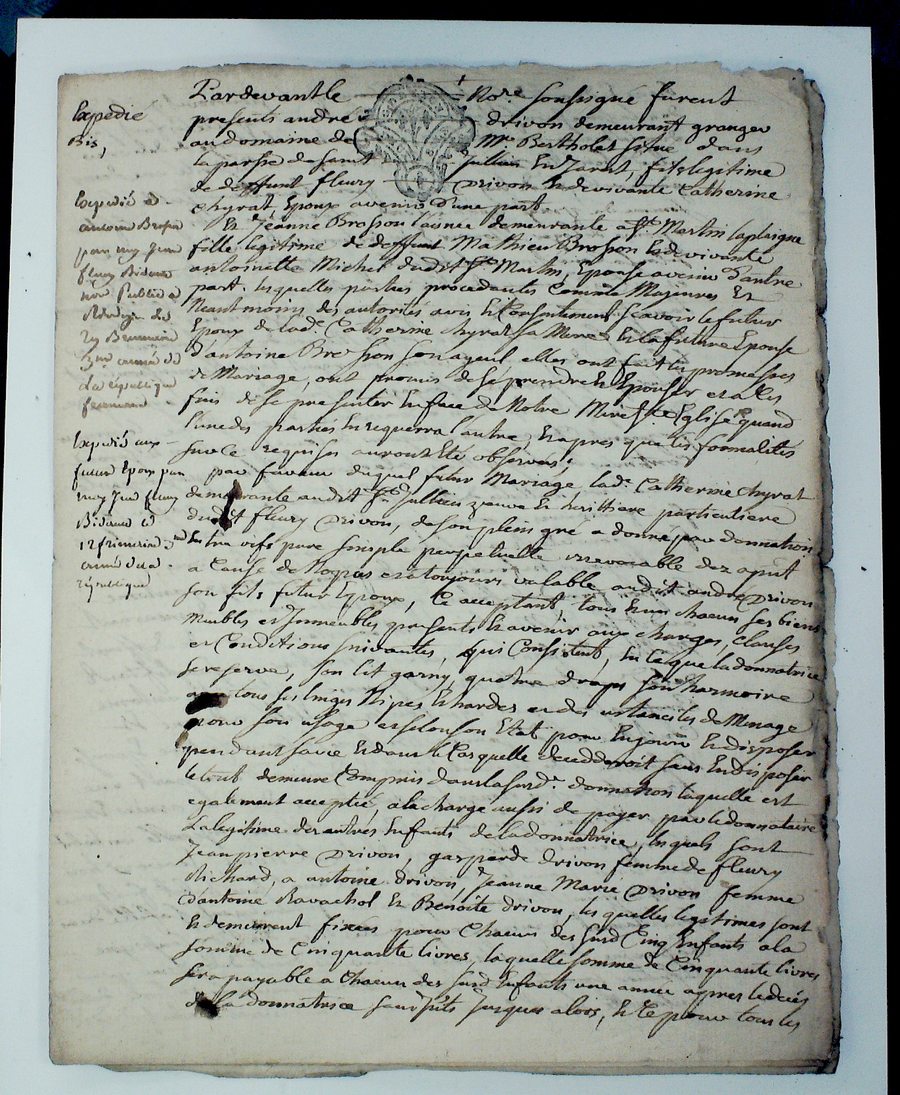 Expedié
Bis,
Expedié a
antoine Brosson
par moy Jean
fleury Bidaud
no.re Public a
29 Brumaire
3me année de
La republique
francaise
Expedié aux
futur Epoux par
moy Jean fleury
Bidaud
12 frimaire 3me
année de la
république
Pardevant le No.re soussigné furent
presents andré Drivon demeurant granger
au domaine de Mr Bertholet situé dans
la parsse de saint Jullien En Jarest, fils legitime
de deffunt fleury Drivon Et de vivante Catherine
Chyrat Epoux avenir d'une part
Et Jeanne Brosson l'ainée demeurante a St Martin laplaigne
fille legitime de deffunt Mathieu Brosson Et de vivante
antoinette Michel dudit St Martin, Epouse avenir d'autre
part, lesquelles parties procedants Comme Majeures Et
Neantmoins des autorités avis Et Consentement, scavoir le futur
Epoux de lade Catherine Chyrat sa Mere, Et la future Epouse
d'antoine Brosson son ayeul elles ont fait les promesses
de Mariage, ont promis de se prendre Et Epouser et a Ces
fins de se presenter En face de Notre Mere Ste Eglise quand
l'une des parties En requerra l'autre, Et apres que les formalités
sur ce requises auront Eté observées;
par faveur duquel futur Mariage lade Catherine Chyrat
demeurante audit St Jullien veuve Et heritiere particuliere
dudit fleury Drivon, de son plein gré a donné par donnation
Entre vifs pure simple perpetuelle irrevocable dez apresent
a Cause de Noces et a toujours valable audit andré Drivon
son fils futur Epoux, Ce acceptant, tous Et un chacun ses biens
Meubles et Immeubles presents Et avenir aux charges, clauses
et Conditions suivantes, qui Consistent, En ce que la donnatrice
se reserve, son lit garny, quatre draps son harmoire
avec tous ses linges Nipes Et hardes et des ustanciles de Menage
pour son usage et selon son Etat pour En jouir Et disposer
pendant sa vie Et dans le Cas qu'elle decedderoit sans En disposer
le tout demeure Compris dans la surde donnation laquelle est
egalement acceptée, a la charge aussi de payer par le donnataire
La legitime des autres Enfants de la donnatrice, lesquels sont
Jean pierre Drivon, gasparde drivon femme de fleury
Richard, a antoine drivon, Jeanne Marie Drivon femme
d'antoine Ravachol Et Benoite drivon, les quelles legitimes sont
Et demeurent fixées pour Chacun des surd Cinq Enfants a la
somme de Cinquante livres, laquelle somme de Cinquante livres
sera payable a Chacun des surd Enfants une année apres le decés
de la donnatrice sans Jnts Jusques alors, Et Ce pour tous les